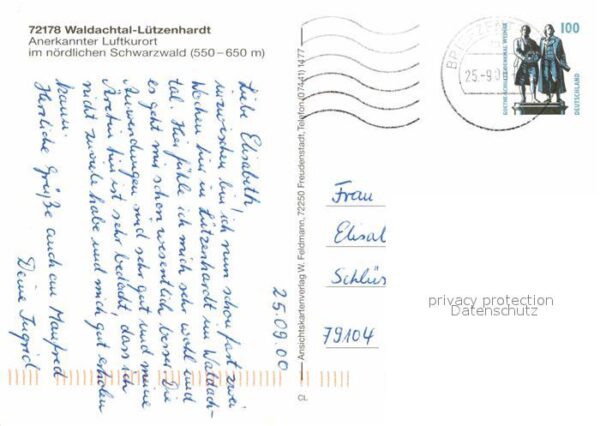 72178 Waldachtal-Lützenhardt
Anerkannter Luftkurort
im nördlichen Schwarzwald (550–650 m)
Liebe Elisabeth!
inzwischen bin ich nun schon fast zwei
Wochen hier in Lützenhardt im Waldach-
tal. Hier fühle ich mich sehr wohl und
es geht mir schon wesentlich besser. Die
Anwendungen sind sehr gut und meine
Ärztin hier ist sehr bedacht, dass ich
nicht zuviele habe und mich gut erholen
kann.
Herzliche Grüße auch an Manfred
Deine Ingrid
25.09.00
Ansichtskartenverlag W. Feldmann, 72250 Freudenstadt, Telefon (07441) 1477
BRIEFZEN
25.-9.0
100
GOETHE-SCHILLER-DENKMAL WEIMAR
DEUTSCHLAND
Frau
Elisa
Schlü
79104
privacy protection
Datenschutz